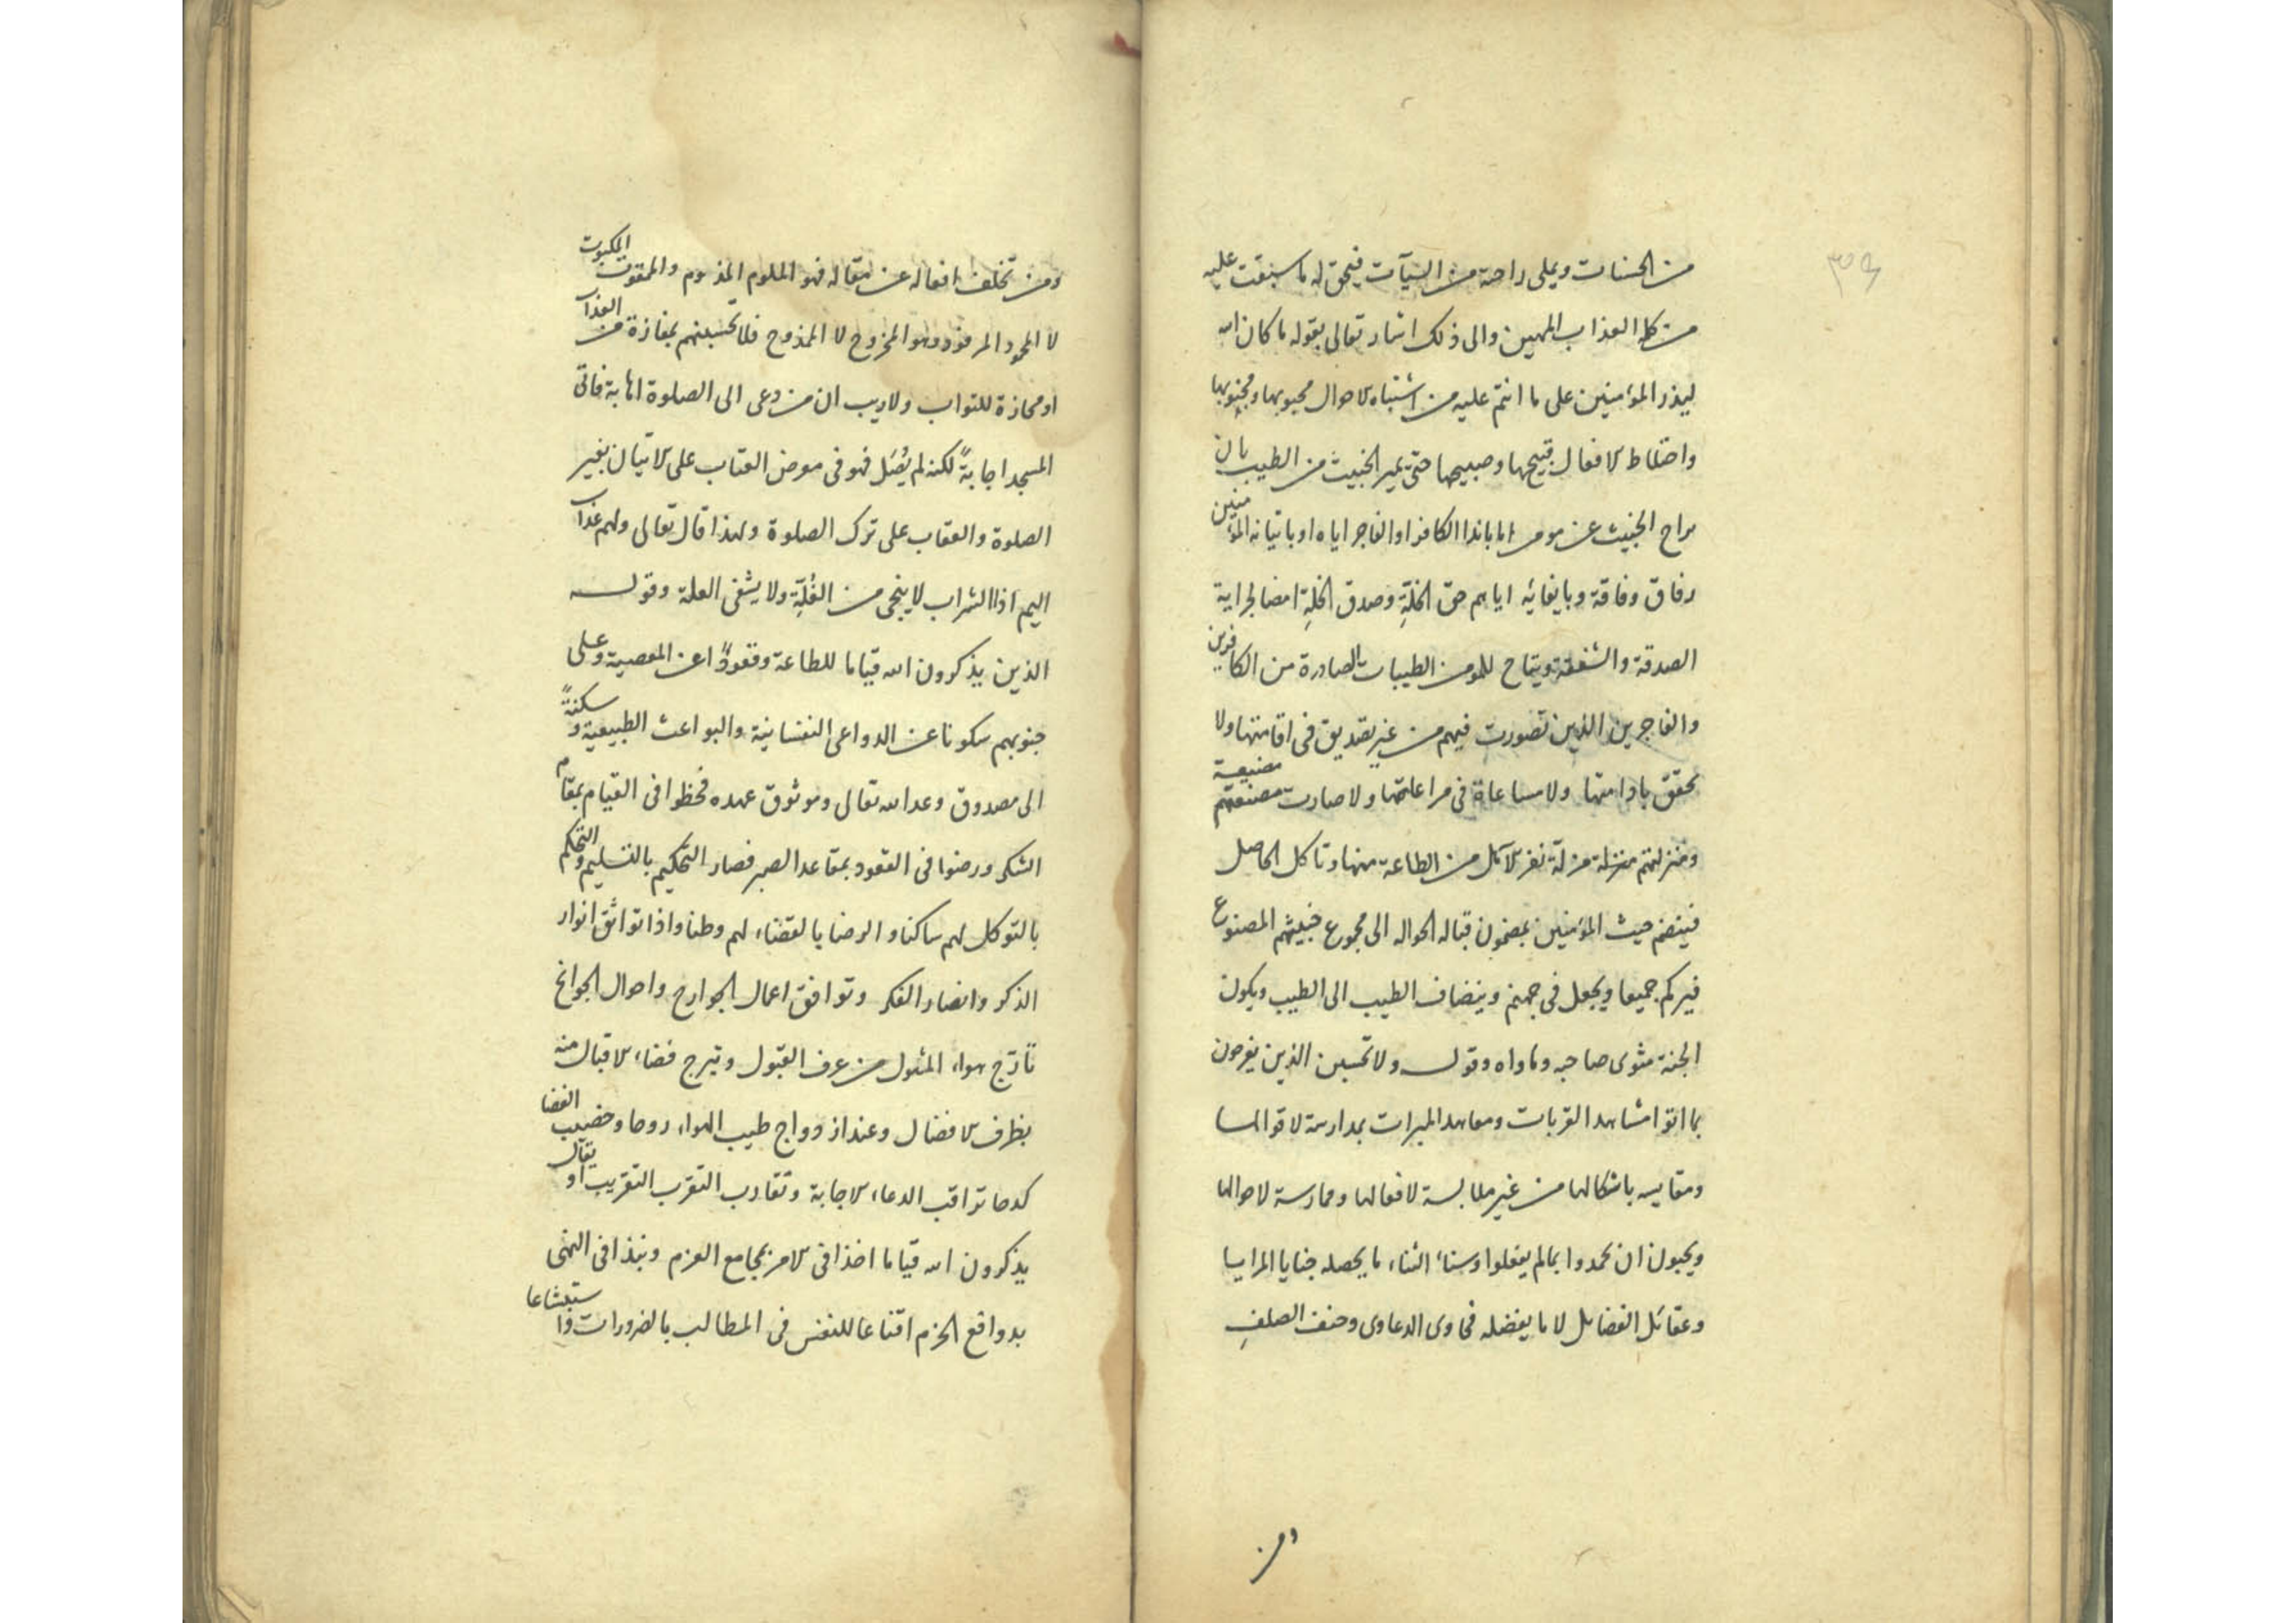 من الحسنات ويملى راحة من السيآت فيحق له ما سبقت عليه
من كلمة العذاب المهين والى ذلك اشار تعالى بقوله ما كان الله
ليذر المؤمنين على ما انتم عليه من اشتباه الاحوال محبوبها ومجنوبها
واختلاط الافعال قبيحها وصبيحها حتى يميز الخبيث من الطيب بان
يراح الخبيث عن مومن اما بايذا الكافر او الفاجر اياه او باتيانه المؤمنين
رفاق وفاقة وبايفائه اياهم حق الخلة وصدق الخلة امضا لجراية
الصدقة والشفقة ويتاح للمومن الطيبات الصادرة من الكافرين
والفاجرين الذين تصورت فيهم من غير تصديق فى اقامتها ولا
تحقق بادامتها ولا مساعاة فى مراعاتها ولا صارت مصنعتهم مضيعة
ومنزلتهم منزلة مزلة نفر الآكل من الطاعة منها وتاكل الحاصل
فينضم حيث المؤمنين بمضمون قباله الحواله الى مجموع خبيثهم المصنوع
فيركم جميعا ويجعل فى جهنم وينضاف الطيب الى الطيب ويكون
الجنة مثوى صاحبه وماواه وقوله ولا تحسبن الذين يفرحون
بما اتوا مشاهد القربات ومعاهد المبرات بمدارسة لاقوالها
ومقايسه باشكالها من غير ملابسة لافعالها وممارسة لاحوالها
ويحبون ان يحمدوا بما لم يفعلوا وسناء الثناء ما يحصله جنايا المزايا
وعقائل الفضائل لا ما يفضله فحاوى الدعاوى وحنف الصلف
ومن
ومن تخلف افعاله عن مقاله فهو الملوم المذموم والممقوت المكبوت
لا المحمود المرفود وهو المخروح لا الممدوح فلا تحسبنهم بمفازة من العذاب
او مجازة للثواب ولا ريب ان من دعى الى الصلوة اهابة فاتى
المسجد اجابة لكنه لم يصل فهو فى معرض العتاب على الاتيان بغير
الصلوة والعقاب على ترك الصلوة ولهذا قال تعالى ولهم عذاب
اليم اذ الشراب لا ينجى من الغلة ولا يشفى العلة وقوله
الذين يذكرون الله قياما للطاعة وقعودا عن المعصية وعلى
جنوبهم سكونا عن الدواعى النفسانية والبواعث الطبيعية وسكنة
الى مصدوق وعد الله تعالى وموثوق عهده فحظوا فى القيام بمقام
الشكر ورضوا فى القعود بمقاعد الصبر فصار التحكيم بالتسليم والتحكم
بالتوكل لهم ساكنا والرضا بالقضاء لهم وطنا واذا تواثق انوار
الذكر وانضار الفكر وتوافق اعمال الجوارح واحوال الجوانح
تأرج هواء المثول من عرف القبول وتبرج فضاء الاقبال منه
بظرف الافضال وعند ازدواج طيب الهواء روحا وخصيب الفضا
كدحا تراقب الدعاء الاجابة وتقارب التقرب التقريب او يقال
يذكرون الله قياما اخذا فى الامر بمجامع العزم ونبذا فى النهى
بدوافع الحزم اقناعا للنفس فى المطالب بالضرورات واستبشاعا